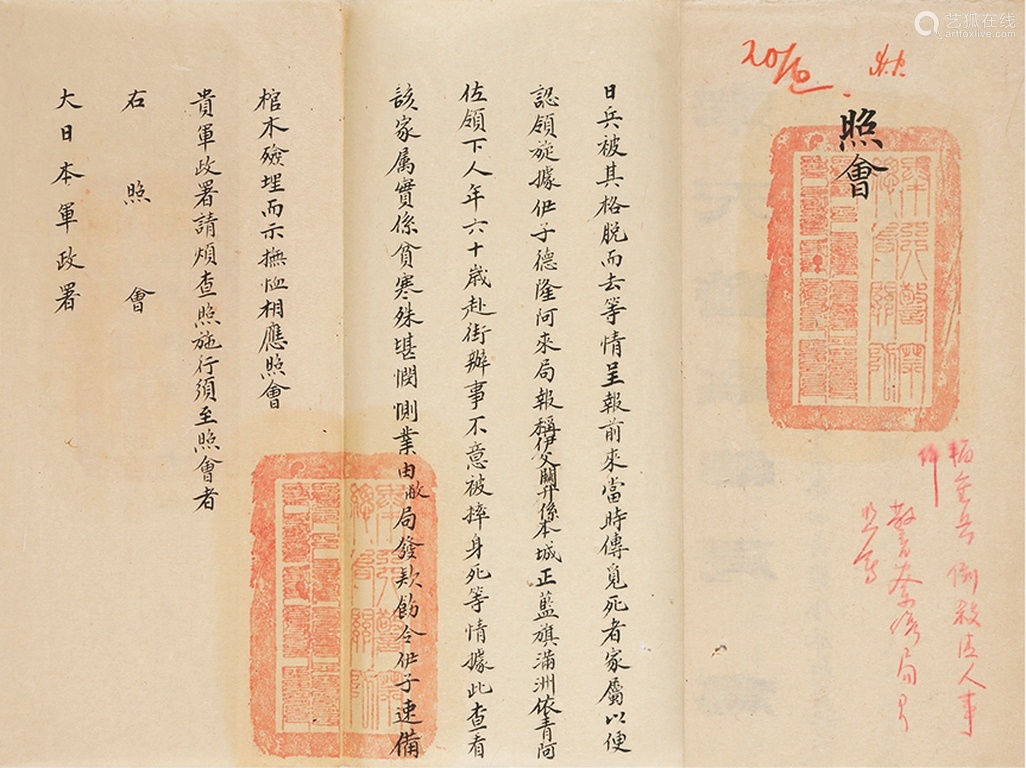 艺狐在线
artfoxlive.com
20/6
照會
日兵被其格脱而去等情呈報前來當時傳覓死者家屬以便
認領旋據伊子德隆阿來局報稱伊父關升係本城正藍旗滿洲依青阿
佐領下人年六十歲赴街辦事不意被摔身死等情據此查看
該家属實係貧寒殊堪憫惻業由敝局發款飭令伊子速備
棺木殮埋而示撫恤相應照會
貴軍政署請煩查照施行須至照會者
右照會
大日本軍政署
警察總局ヨリ